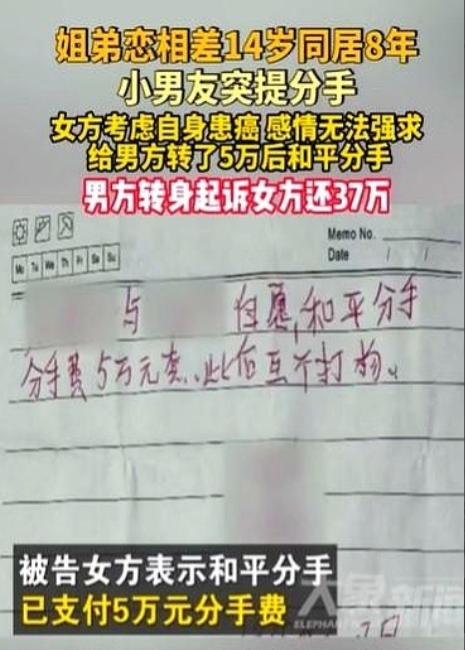 姐弟恋相差14岁同居8年
小男友突提分手
女方考虑自身患癌 感情无法强求
给男方转了5万后和平分手
男方转身起诉女方还37万
Memo No.
Mo Tu We Th Fr Sa Su
Date / /
与 自愿,和平分手
分手费5万元整..此后互不打扰、
被告女方表示和平分手
已支付5万元分手费
大象新闻
ELEPHANT